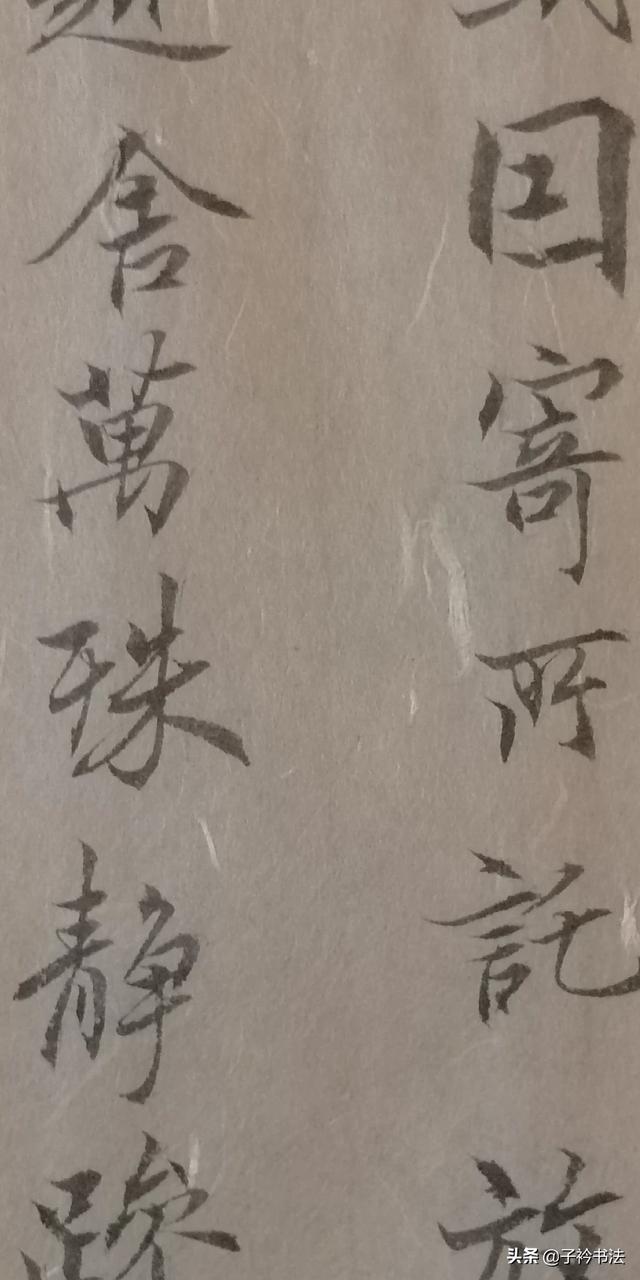 因寄所託放
舍萬殊静躁
头条 @子衿书法